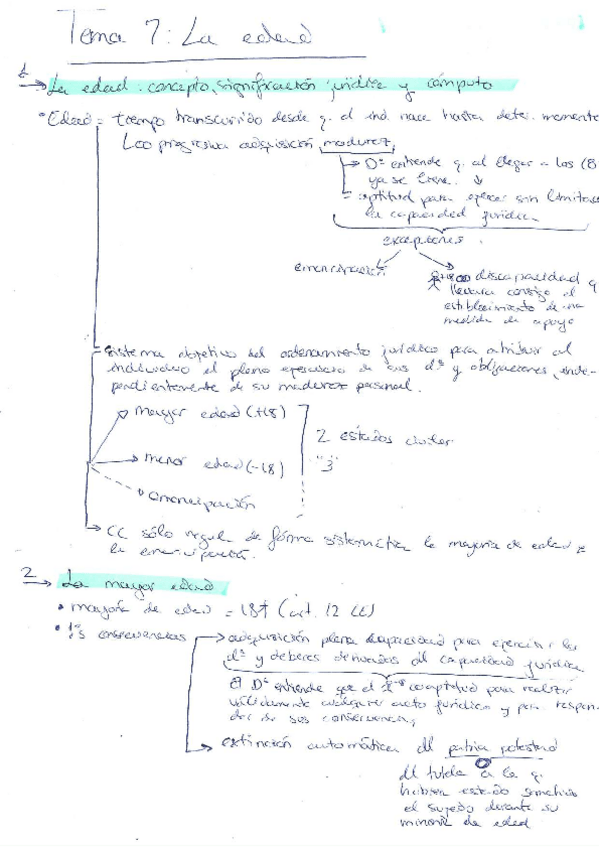 Tema 7: La edad
1 → La edad: concepto, significación jurídica y cómputo
• Edad = tiempo transcurrido desde q. el ind. nace hasta deter. momento
progresiva adquisición madurez
→ Dº entiende q. al llegar a los 18
ya se tiene. ↓
= aptitud para ejercer sin límites
la capacidad jurídica.
excepciones.
emancipación
+18 con discapacidad q
llevara consigo el
establecimiento de una
medida de apoyo
= sistema objetivo del ordenamiento jurídico para atribuir al
individuo el pleno ejercicio de sus dºs y obligaciones, inde-
pendientemente de su madurez personal.
→ mayor edad (+18)
2 estados civiles
→ menor edad (-18)
"3"
→ emancipación
→ CC sólo regula de forma sistemática la mayoría de edad y
la emancipación.
2 → La mayor edad
• mayoría de edad = 18+ (art. 12 CE)
• 1ªs consecuencias → adquisición plena capacidad para ejercitar los
dºs y deberes derivados dl capacidad jurídica
El Dº entiende que el +18 aptitud para realizar
válidamente cualquier acto jurídico y para respon-
der de sus consecuencias
→ extinción automática dl patria potestad
dl tutela o la q.
hubiera estado sometido
el sujeto durante su
minoría de edad